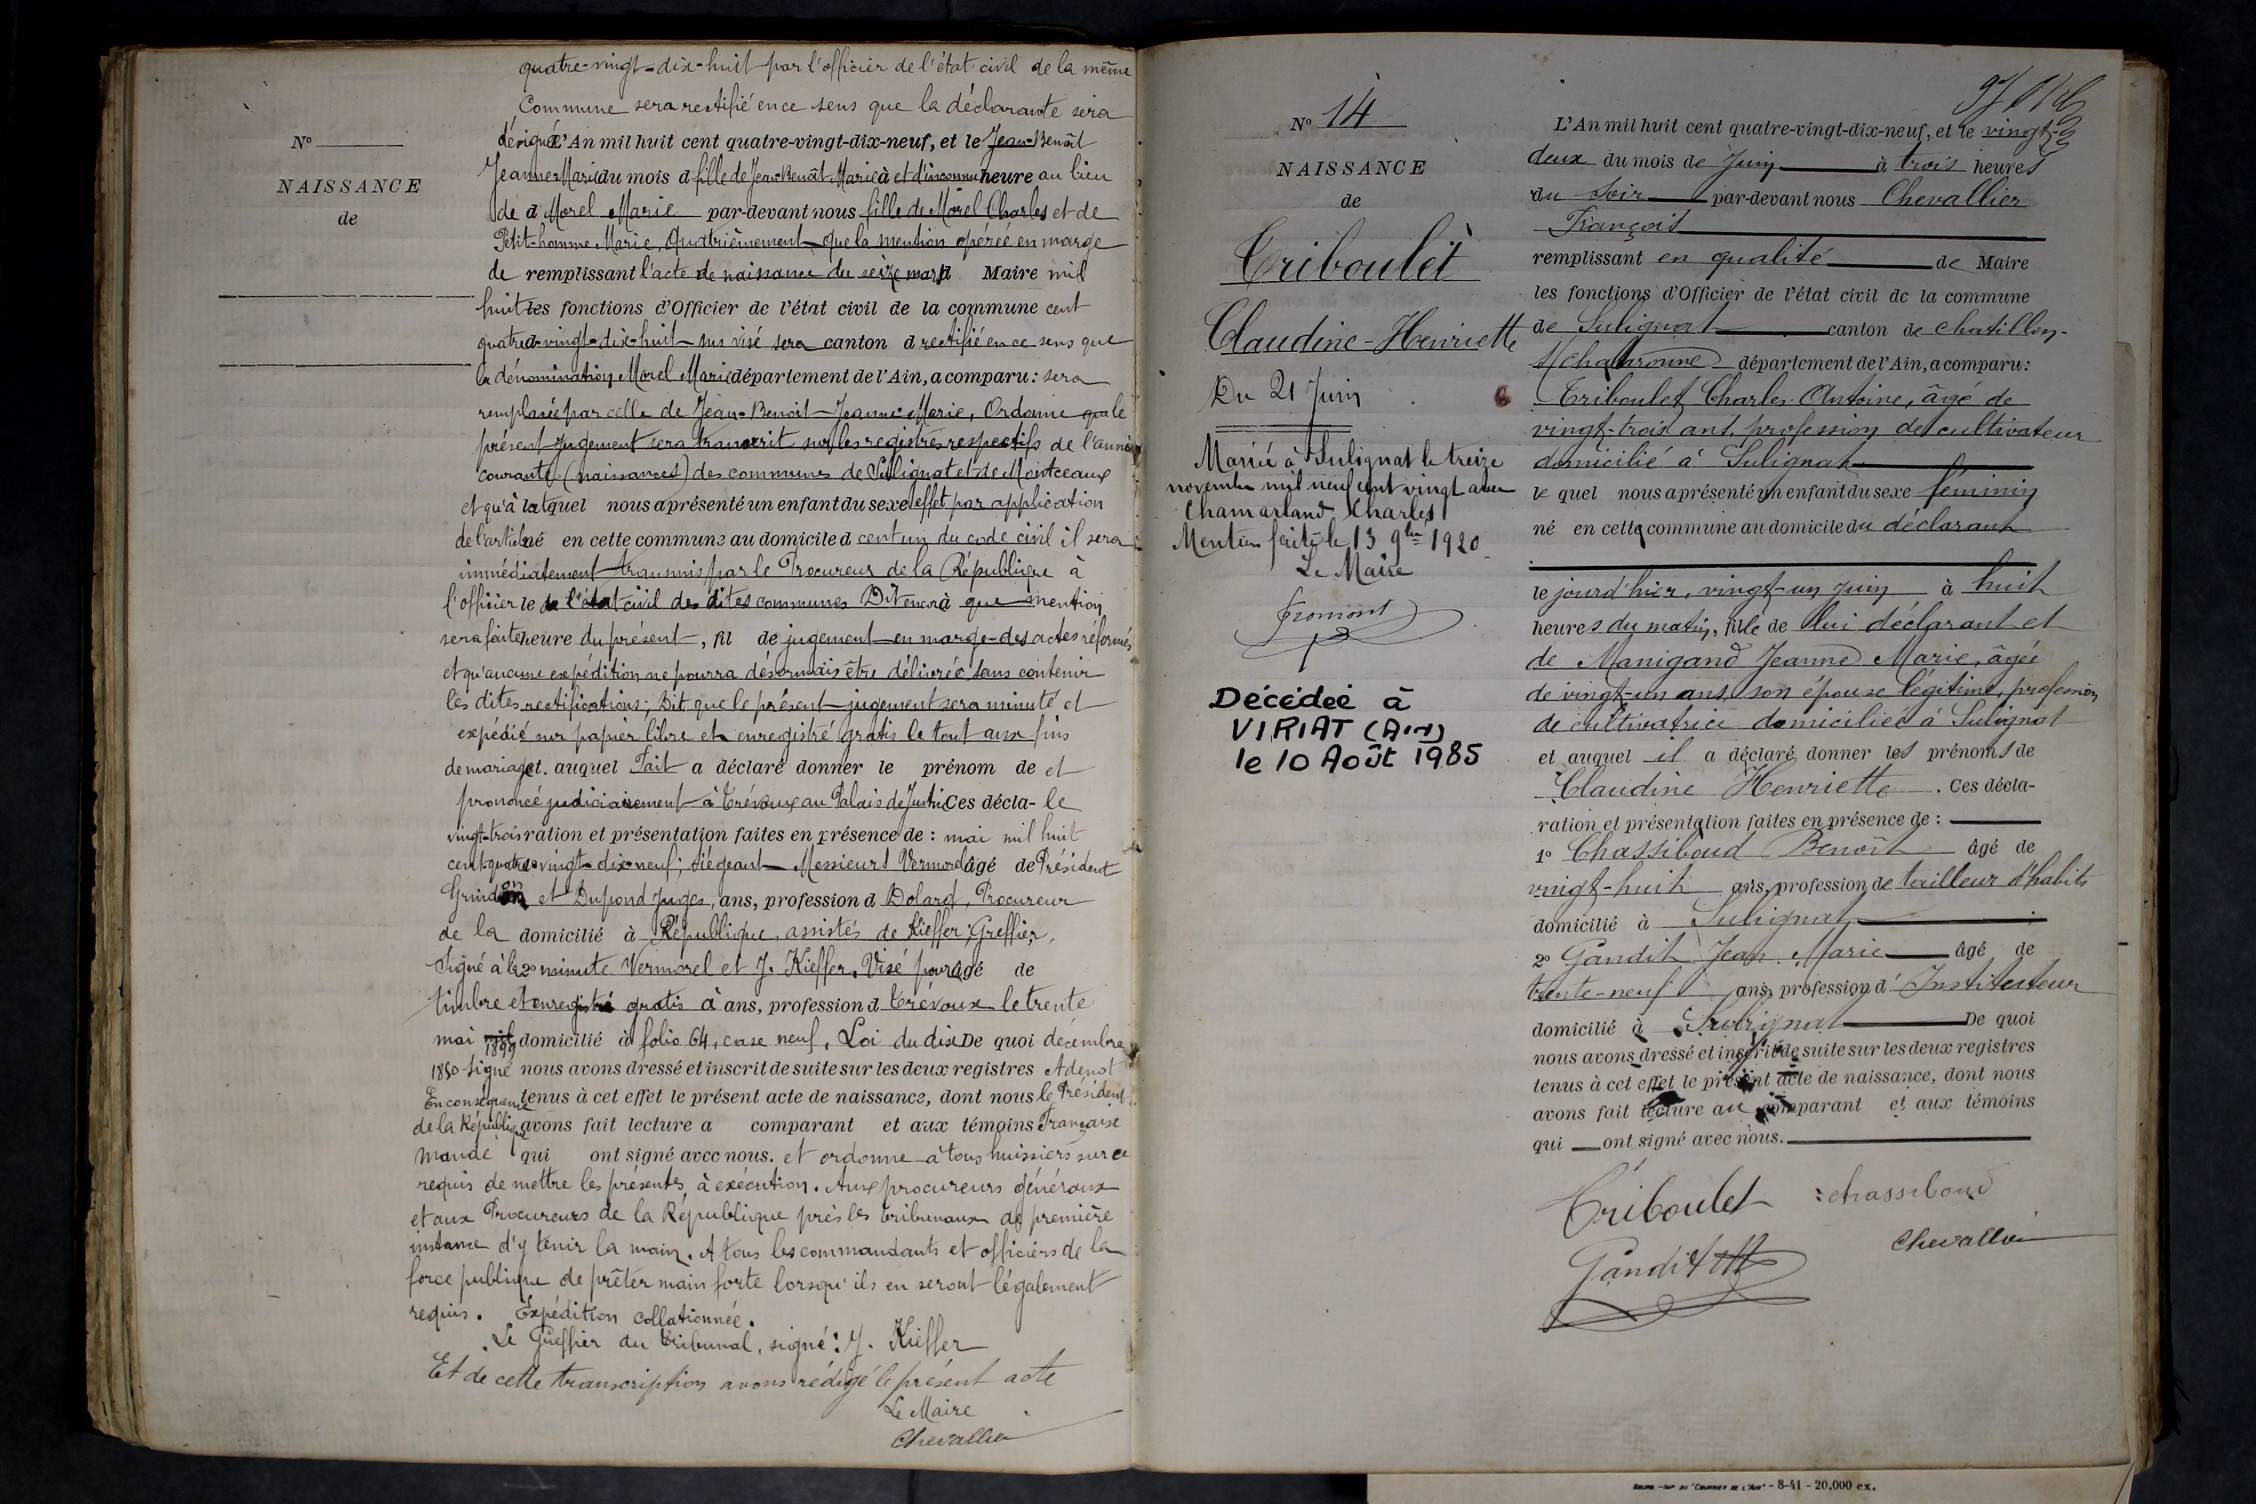 quatre-vingt-dix-huit par l'officier de l'état civil de la même
Commune sera rectifié en ce sens que la déclarante sera
No
NAISSANCE
de
désignée L'An mil huit cent quatre-vingt-dix-neuf, et le Jean-Benoît
Jeanne Marie du mois d fille de Jean Benoît Marie à et d'inconnu heure au lieu
de d Morel Marie par-devant nous fille de Morel Charles et de
Petit-homme Marie, Quatrièmement que la mention opérée en marge
de remplissant l'acte de naissance du seize mars d Maire mil
huit les fonctions d'Officier de l'état civil de la commune cent
quatre d vingt-dix-huit sus visé sera canton d rectifié en ce sens que
la dénomination Morel Marie département de l'Ain, a comparu : sera
remplacée par celle de Jean-Benoit Jeanne-Marie, Ordonne que le
présent jugement sera transcrit sur les registres respectifs de l'année
courante (naissances) des communes de Sulignat et de Montceaux
et qu'à le quel nous a présenté un enfant du sexe effet par application
de l'article né en cette commune au domicile d cent un du code civil il sera
immédiatement transmis par le Procureur de la République à
l'officier le de l'état civil des dites communes Dit encore à que mention
sera faite heure du présent, fil de jugement en marge des actes réformés
et qu'aucune expédition ne pourra désormais être délivrée sans contenir
les dites rectifications; Dit que le présent jugement sera minuté et
expédié sur papier libre et enregistré gratis le tout aux fins
de mariage et. auquel Fait a déclaré donner le prénom de et
prononcé judiciairement à Trévoux au Palais de Justice Ces décla- le
vingt-trois ration et présentation faites en présence de : mai mil huit
cent quatre 1o vingt-dix-neuf; siégeant Messieurs Vermorel âgé de Président
Grindon et Dupond Juges, ans, profession d Dolard, Procureur
de la domicilié à République, assistés de Kieffer, Greffier,
Signé à la 2o minute Vermorel et J. Kieffer. Visé pour âgé de
timbre et enregistré gratis à ans, profession d Trévoux le trente
mai mil 1899 domicilié à folio 64, case neuf, Loi du dix De quoi décembre
1850 Signé nous avons dressé et inscrit de suite sur les deux registres Adenot
En conséquence tenus à cet effet le présent acte de naissance, dont nous le Président
de la République avons fait lecture a comparant et aux témoins Française
mande qui ont signé avec nous. et ordonne à tous huissiers sur ce
requis de mettre les présentes à exécution. Aux procureurs généraux
et aux Procureurs de la République près les tribunaux de première
instance d'y tenir la main. A tous les commandants et officiers de la
force publique de prêter main forte lorsqu'ils en seront légalement
requis. Expédition collationnée.
Le Greffier du tribunal, signé : J. Kieffer
Et de cette transcription avons rédigé le présent acte
Le Maire
Chevallier
No 14
NAISSANCE
de
Triboulet
Claudine-Henriette
Du 21 Juin
Mariée à Sulignat le treize
novembre mil neuf cent vingt avec
Chamarland Charles
Mention faite le 13 9bre 1920
Le Maire
Fromont
Décédée à
VIRIAT (Ain)
le 10 Août 1985
L'An mil huit cent quatre-vingt-dix-neuf, et le vingt-
deux du mois de Juin à trois heures
du Soir par-devant nous Chevallier
François
remplissant en qualité de Maire
les fonctions d'Officier de l'état civil de la commune
de Sulignat canton de chatillon-
s/chalaronne département de l'Ain, a comparu :
Triboulet Charles Antoine, âgé de
vingt-trois ans, profession de cultivateur
domicilié à Sulignat
le quel nous a présenté un enfant du sexe féminin
né en cette commune au domicile du déclarant
le jourd'hier, vingt-un juin à huit
heures du matin, fille de lui déclarant et
de Manigand Jeanne Marie, âgée
de vingt-un ans, son épouse légitime, profession
de cultivatrice domiciliée à Sulignat
et auquel il a déclaré donner les prénoms de
Claudine Henriette. Ces décla-
ration et présentation faites en présence de :
1o Chassiboud Benoît âgé de
vingt-huit ans, profession de tailleur d'habits
domicilié à Sulignat
2o Gandit Jean Marie âgé de
trente-neuf ans, profession d'Instituteur
domicilié à Sulignat De quoi
nous avons dressé et inscrit de suite sur les deux registres
tenus à cet effet le présent acte de naissance, dont nous
avons fait lecture au comparant et aux témoins
qui ont signé avec nous.
Triboulet chassiboud
Gandit Chevallier
8-41 - 20.000 ex.